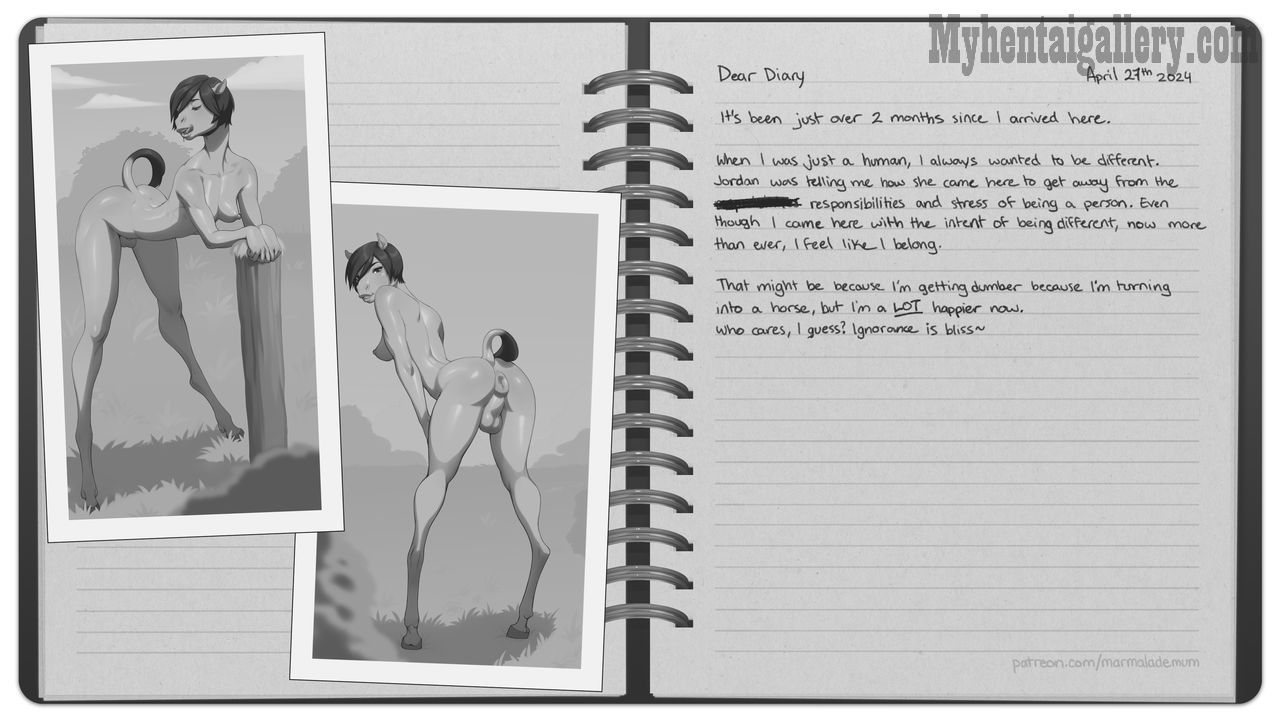 Myhentaigallery.com
Dear Diary
April 27th 2024
It's been just over 2 months since I arrived here.
When I was just a human, I always wanted to be different.
Jordan was telling me how she came here to get away from the
responsibilities and stress of being a person. Even
though I came here with the intent of being different, now more
than ever, I feel like I belong.
That might be because I'm getting dumber because I'm turning
into a horse, but I'm a LOT happier now.
Who cares, I guess? Ignorance is bliss~
patreon.com/marmalademum